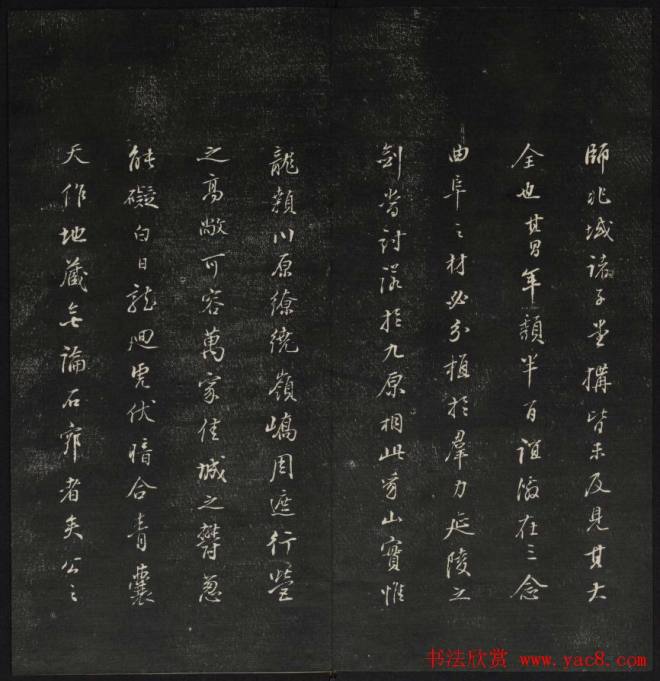 師兆域諸子堂構皆未及見其大
全也其男年頹半百誼激在三念
曲阜之材必分植於羣力延陵之
劍當討於九原相此山寶惟
龍類川原繚繞嶺嶠周遮行營
之高敞可容萬家佳城之鬱葱
能礙白日龍迴虎伏暗合青囊
天作地藏無論石者矣公之
书法欣赏 www.yac8.com